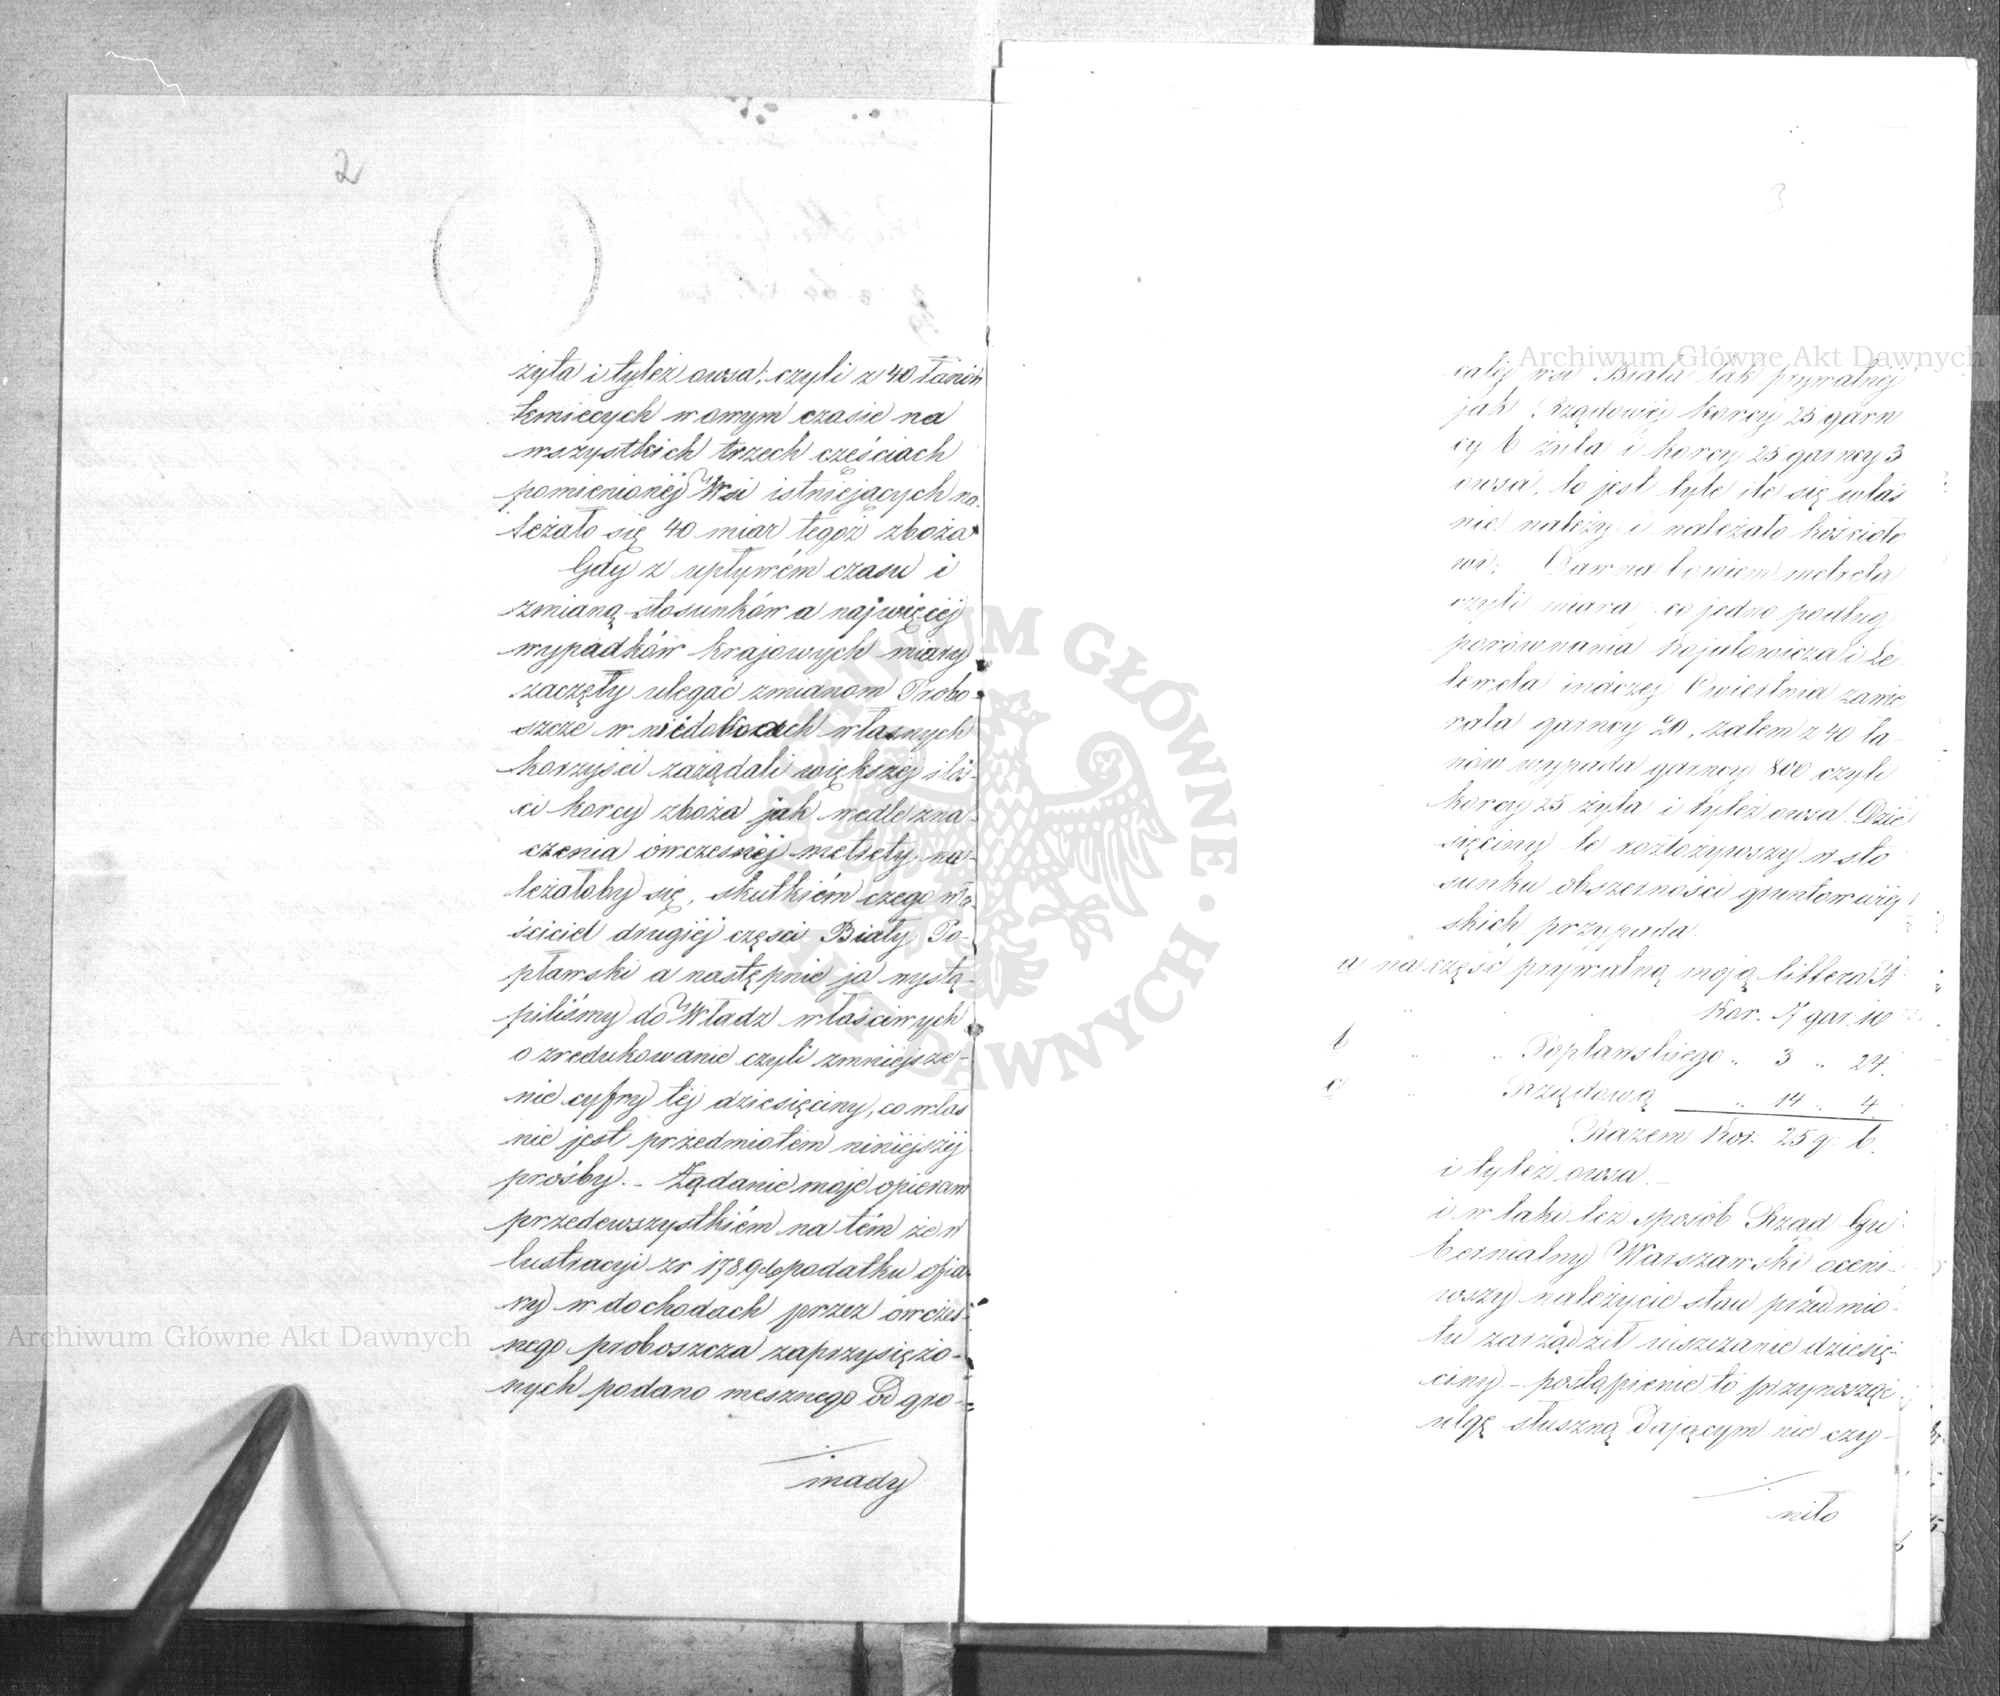 2
żyta i tyleż owsa, czyli z 40 łanów
kmiecych w owym czasie na
wszystkich trzech częściach
pomienionéj Wsi istniejących na-
leżało się 40 miar tegoż zboża
Gdy z upływém czasu i
zmianą stosunków a najwięcéj
wypadków krajowych miary
zaczęły ulegać zmianom Probo-
szcze w widokach własnych
korzyści zażądali większéj iloś-
ci korcy zboża jak wedle zna-
czenia ówczesnéj metrety na-
leżałoby się, skutkiém czego wła-
ściciel drugiéj części Biały Po-
pławski a następnie ja wystą-
piliśmy do Władz właściwych
o zredukowanie czyli zmniejsze-
nie cyfry téj dziesięciny, co właś
nie jest przedmiotem niniejszéj
prośby. – Żądanie moje opieram
przedewszystkiém na tém że w
lustracyi z r 1789 do podatku ofia-
ry w dochodach przez ówczes-
nego proboszcza zaprzysiężo-
nych podano mesznego Od gro-
mady
3
całéj wsi Biała tak prywatnéj
jak Rządowéj korcy 25 garn
cy 6 żyta i korcy 25 garncy 3
owsa, to jest tyle ile się właś
nie należy i należało kościoło
wi. Dawna bowiem metreta
czyli miara, co jedno podług
porównania Kojałowicza i Le-
lewela inaczéj Cwiertnia zawie
rała garncy 20, zatem z 40 ła-
nów wypada garncy 800 czyli
korcy 25 żyta i tyleż owsa. Dzie
sięciny te rozłożywszy w sto
sunku obszerności gruntów wiej
skich przypada
a na część prywatną moją littera A
Kor. 7 gar. 10
b " " Popławskiego " 3 " 24.
c " Rządową " 14 " 4.
Razem Kor. 25 g. 6.
i tyleż owsa. –
i w taki też sposób Rząd Gu
bernialny Warszawski oceni-
wszy należycie stan przedmio-
tu zarządził uiszczanie dziesię-
ciny – postąpienie to przynosząc
ulgę słuszną Dającym nie czy-
niło
Archiwum Główne Akt Dawnych
Archiwum Główne Akt Dawnych
ARCHIWUM GŁÓWNE AKT DAWNYCH